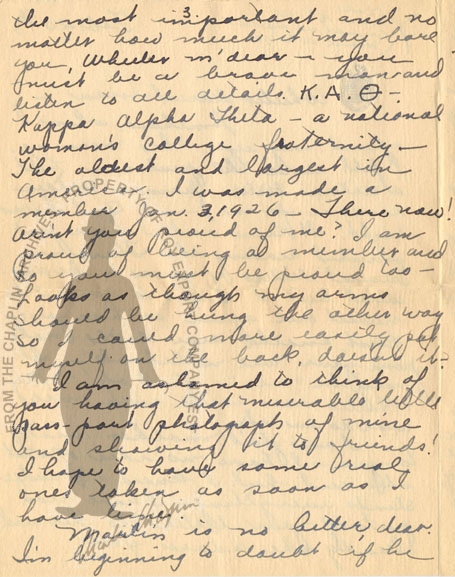 3
the most important and no
matter how much it may bore
you, Wheeler m'dear – you
must be a brave man and
listen to all details. K.A.Θ –
Kappa Alpha Theta – a national
woman's college fraternity –
The oldest and largest in
America. I was made a
member Jan. 3, 1926 – There now!
Arn't you proud of me? I am
proud of being a member and
so you must be proud too –
Looks as though my arms
should be hung the other way
so I could more easily pat
myself on the back, doesn't it –
I am ashamed to think of
you having that miserable little
pass-port photograph of mine
and showing it to friends!
I hope to have some real
ones taken as soon as I
have time.
Martin is no better, dear.
I'm beginning to doubt if he
FROM THE CHAPLIN ARCHIVE PROPERTY OF EXPORT COMPANY SA